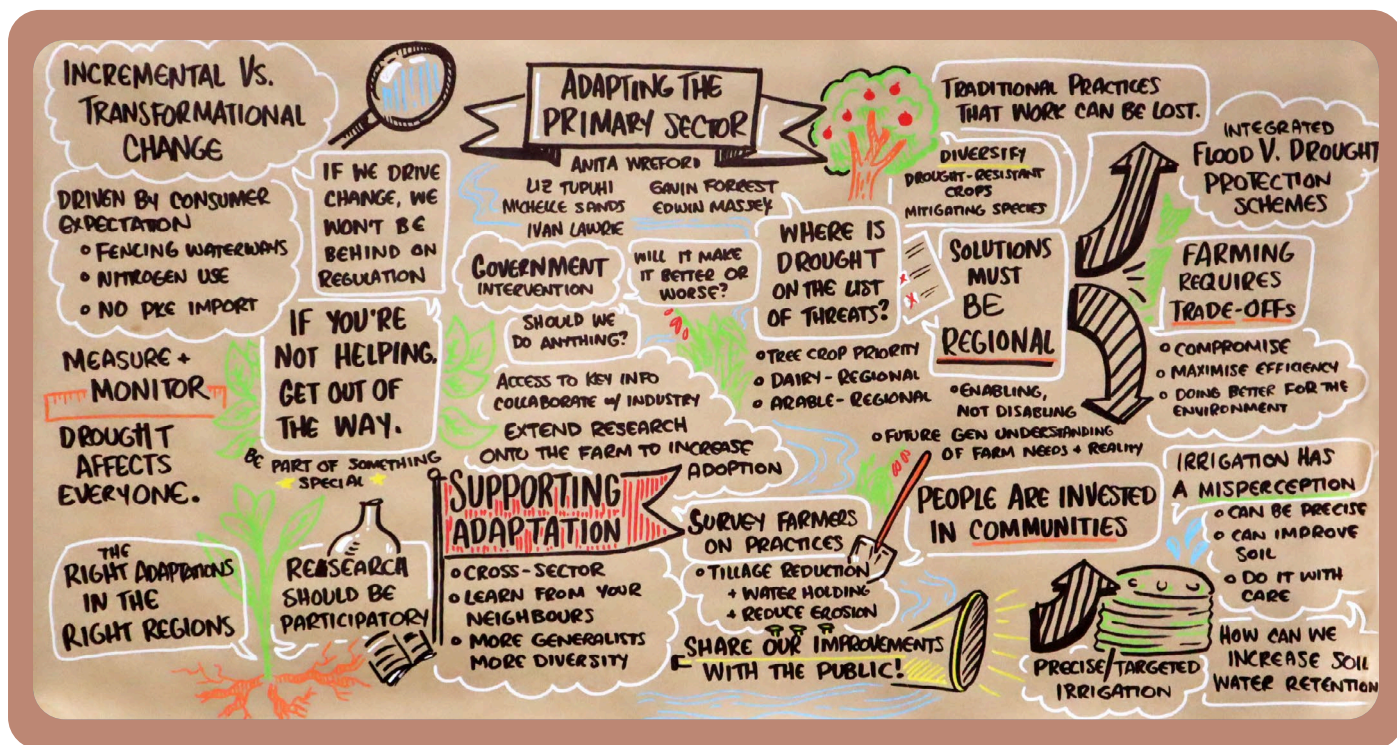 INCREMENTAL VS.
TRANSFORMATIONAL
CHANGE
DRIVEN BY CONSUMER
EXPECTATION
FENCING WATERWAYS
NITROGEN USE
NO PKE IMPORT
IF WE DRIVE
CHANGE, WE
WON'T BE
BEHIND ON
REGULATION
IF YOU'RE
NOT HELPING.
GET OUT OF
THE WAY.
MEASURE +
MONITOR
DROUGHT
AFFECTS
EVERYONE.
BE PART OF SOMETHING
SPECIAL
THE
RIGHT ADAPTATIONS
IN THE
RIGHT REGIONS
RESEARCH
SHOULD BE
PARTICIPATORY
ADAPTING THE
PRIMARY SECTOR
ANITA WREFORD
LIZ TUPUHI
MICHELLE SANDS
IVAN LAWRIE
GAVIN FORREST
EDWIN MASSEY
GOVERNMENT
INTERVENTION
WILL IT MAKE
IT BETTER OR
WORSE?
SHOULD WE
DO ANYTHING?
ACCESS TO KEY INFO
COLLABORATE W/ INDUSTRY
EXTEND RESEARCH
ONTO THE FARM TO INCREASE
ADOPTION
SUPPORTING
ADAPTATION
CROSS-SECTOR
LEARN FROM YOUR
NEIGHBOURS
MORE GENERALISTS
MORE DIVERSITY
WHERE IS
DROUGHT
ON THE LIST
OF THREATS?
TREE CROP PRIORITY
DAIRY - REGIONAL
ARABLE - REGIONAL
SURVEY FARMERS
ON PRACTICES
TILLAGE REDUCTION
+ WATER HOLDING
+ REDUCE EROSION
SHARE OUR IMPROVEMENTS
WITH THE PUBLIC!
TRADITIONAL PRACTICES
THAT WORK CAN BE LOST.
DIVERSIFY
DROUGHT-RESISTANT
CROPS
MITIGATING SPECIES
SOLUTIONS
MUST
BE
REGIONAL
ENABLING,
NOT DISABLING
FUTURE GEN UNDERSTANDING
OF FARM NEEDS + REALITY
PEOPLE ARE INVESTED
IN COMMUNITIES
INTEGRATED
FLOOD V. DROUGHT
PROTECTION
SCHEMES
FARMING
REQUIRES
TRADE-OFFS
COMPROMISE
MAXIMISE EFFICIENCY
DOING BETTER FOR THE
ENVIRONMENT
IRRIGATION HAS
A MISPERCEPTION
CAN BE PRECISE
CAN IMPROVE
SOIL
DO IT WITH
CARE
PRECISE/TARGETED
IRRIGATION
HOW CAN WE
INCREASE SOIL
WATER RETENTION